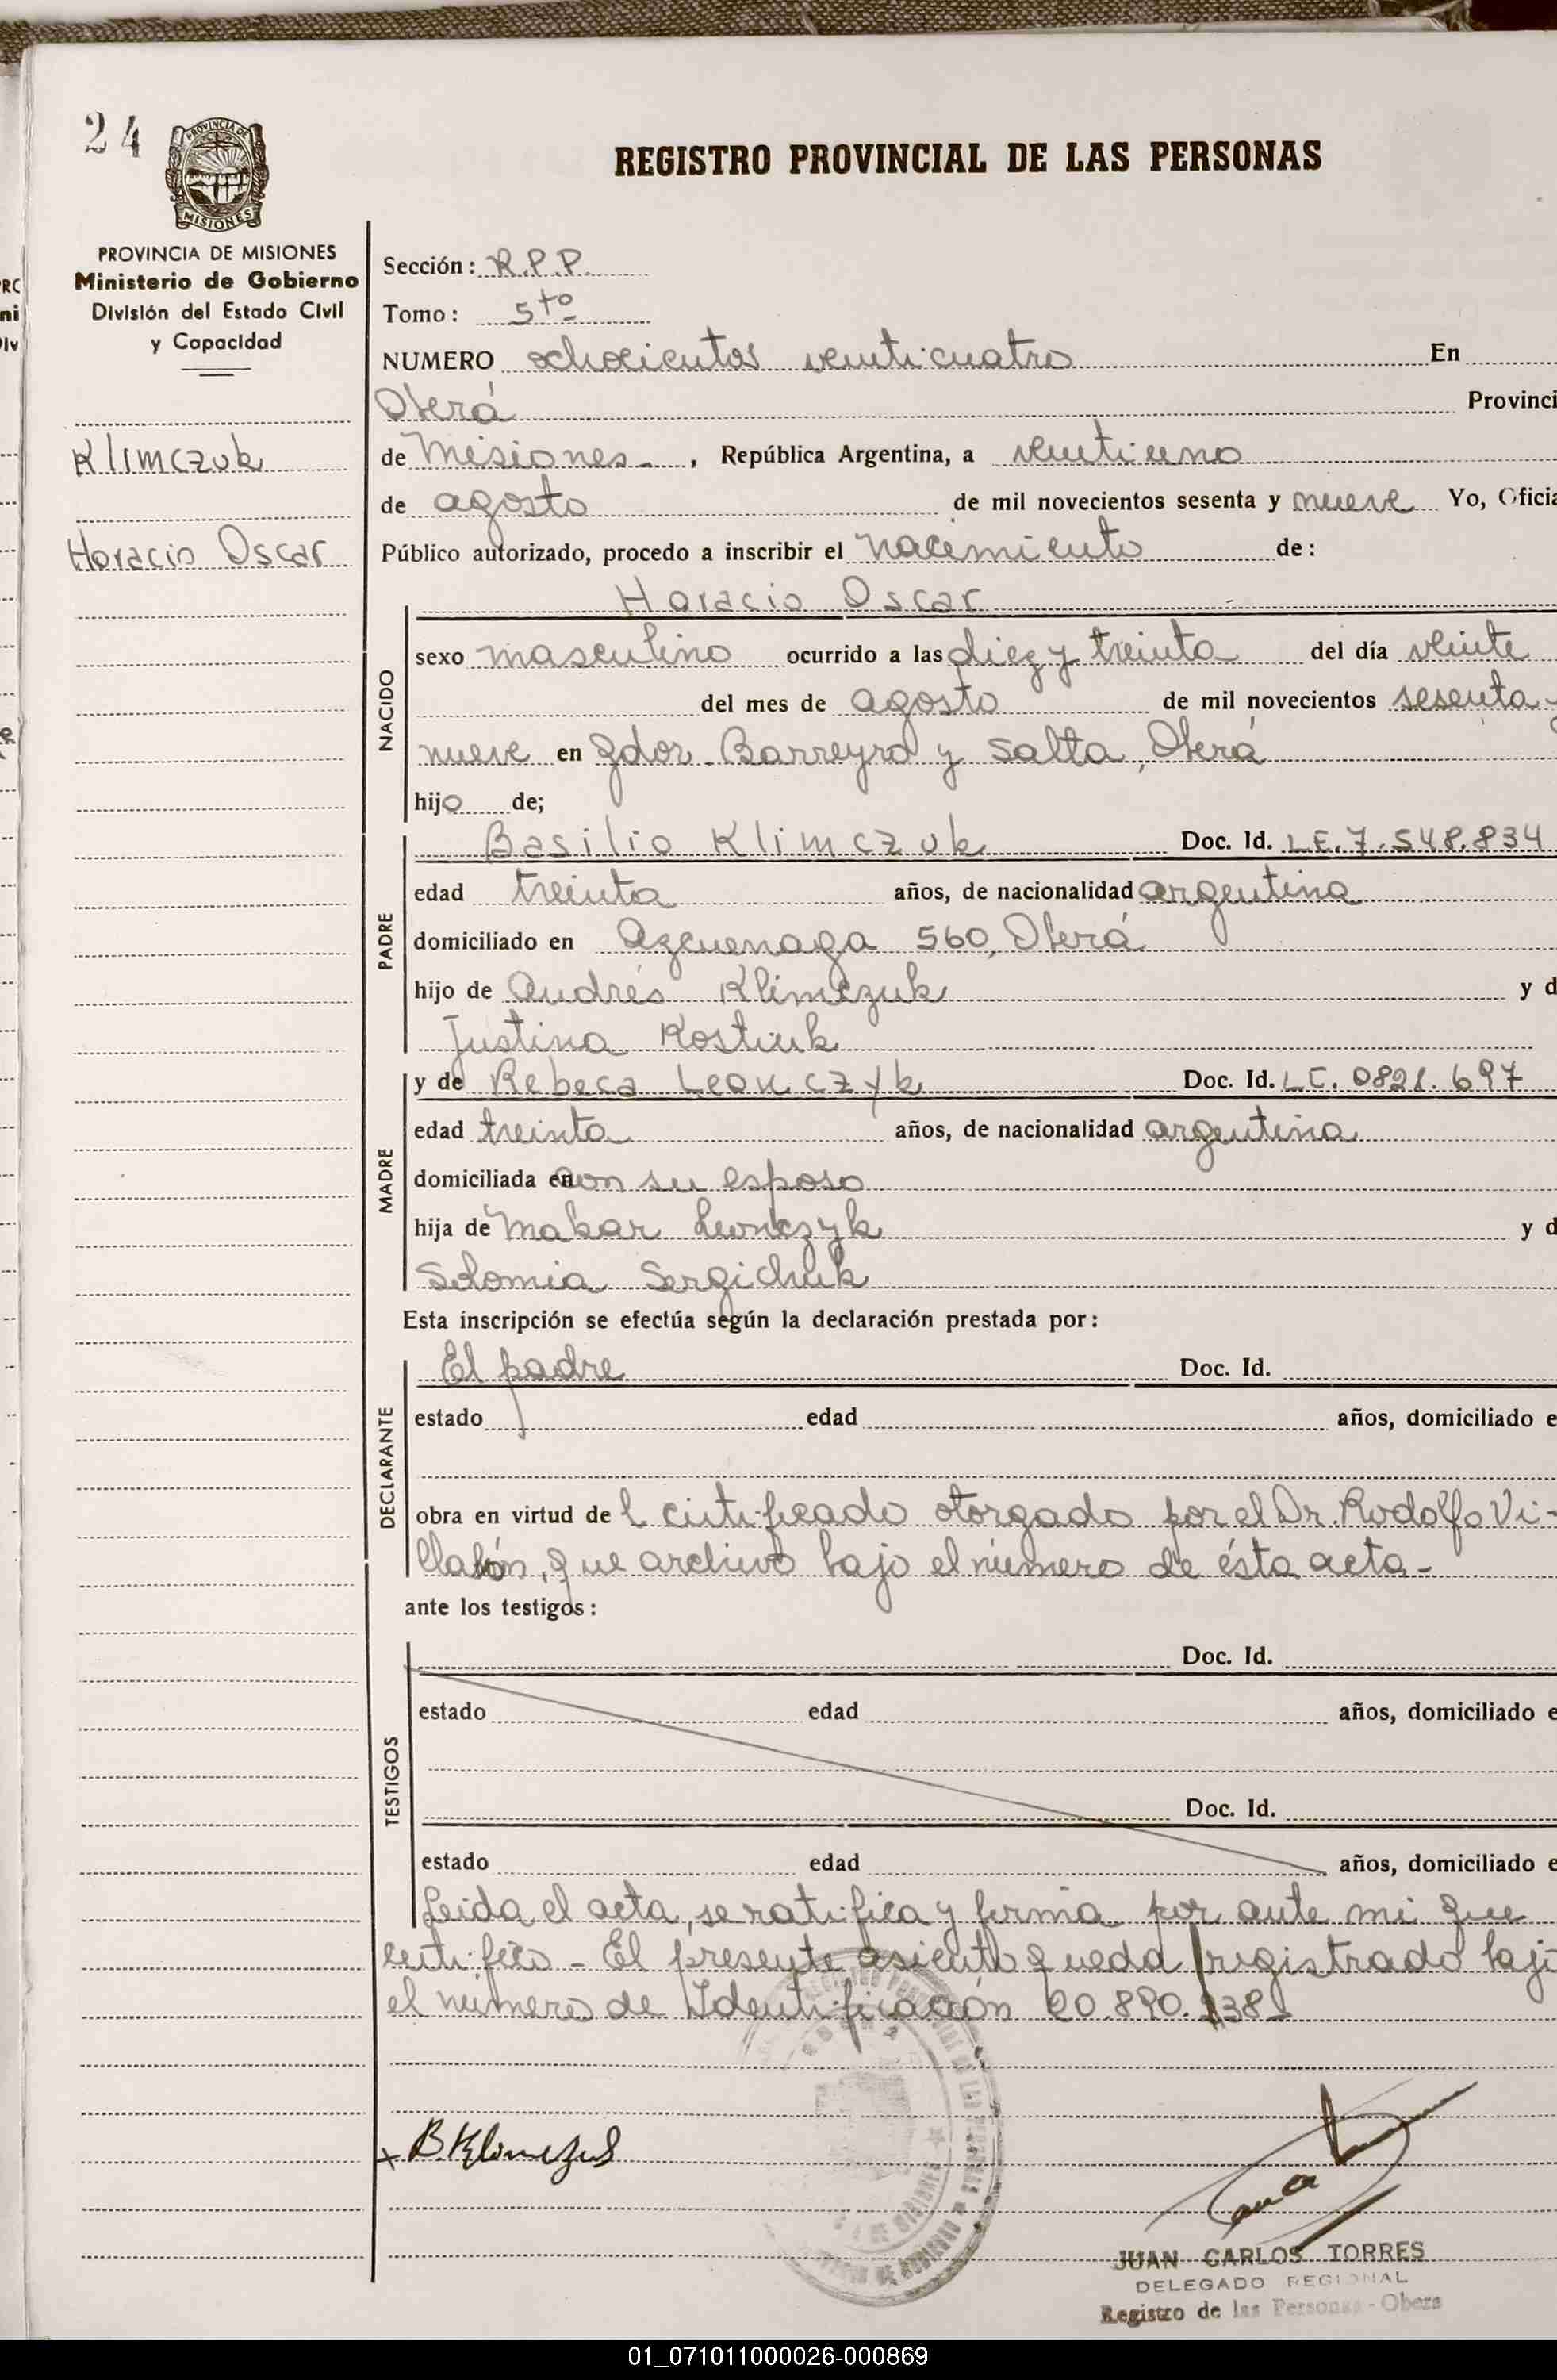 24
PROVINCIA DE
MISIONES
REGISTRO PROVINCIAL DE LAS PERSONAS
PROVINCIA DE MISIONES
Ministerio de Gobierno
División del Estado Civil
y Capacidad
Klimczuk
Horacio Oscar
Sección: R.P.P.
Tomo: 5to
NUMERO ochocientos veinticuatro En
Oberá Provinci
de Misiones. , República Argentina, a veintiuno
de agosto de mil novecientos sesenta y nueve Yo, Oficia
Público autorizado, procedo a inscribir el nacimiento de:
Horacio Oscar
NACIDO
sexo masculino ocurrido a las diez y treinta del día veinte
del mes de agosto de mil novecientos sesenta y
nueve en Gdor. Barreyro y Salta, Oberá
hijo de;
PADRE
Basilio Klimczuk Doc. Id. LE. 7.548.834
edad treinta años, de nacionalidad argentina
domiciliado en Azcuenaga 560, Oberá
hijo de Andrés Klimczuk y d
Justina Kostiuk
MADRE
y de Rebeca Leonczyk Doc. Id. LC. 0821.697
edad treinta años, de nacionalidad argentina
domiciliada en con su esposo
hija de Makar Leonczyk y d
Solomia Sergichuk
Esta inscripción se efectúa según la declaración prestada por:
DECLARANTE
El padre Doc. Id.
estado edad años, domiciliado e
obra en virtud de l certificado otorgado por el Dr. Rodolfo Vi-
llalón, que archivo bajo el número de ésta acta-
ante los testigos:
TESTIGOS
Doc. Id.
estado edad años, domiciliado e
Doc. Id.
estado edad años, domiciliado e
Leida el acta, se ratifica y firma por ante mi que
certifico - El presente asiento queda registrado bajo
el número de Identificación 20.890.238-
x B. Klimczuk
JUAN CARLOS TORRES
DELEGADO REGIONAL
Registro de las Personas - Obera
01_071011000026-000869